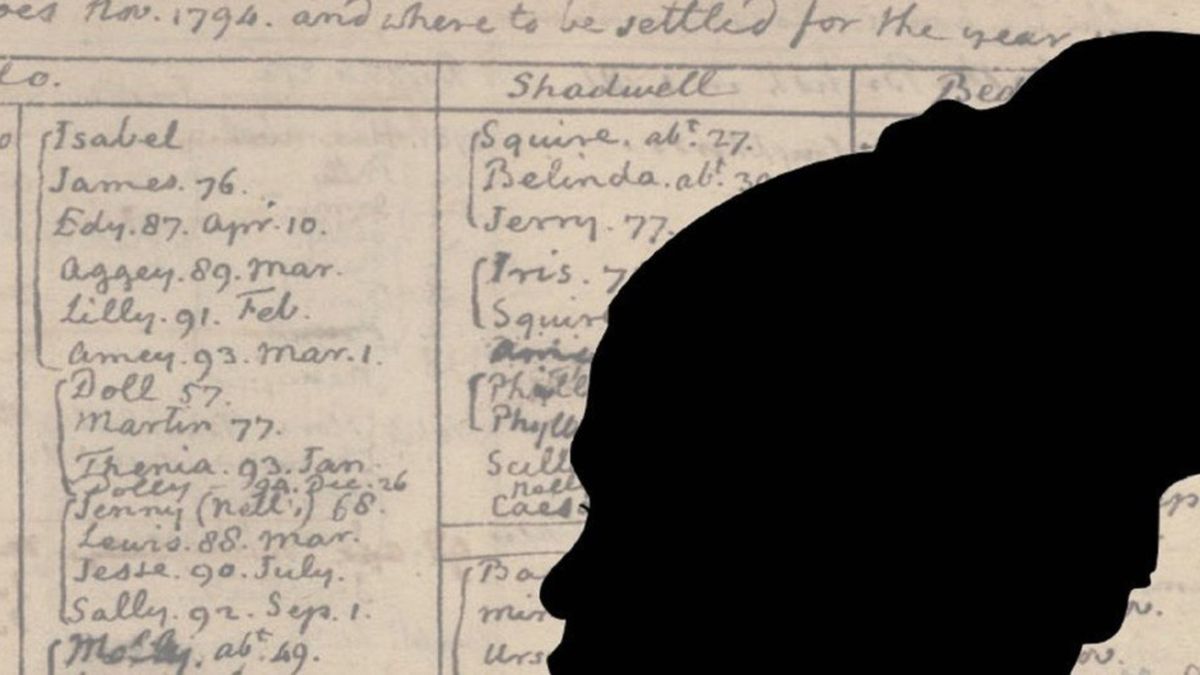 Nov. 1794. and where to be settled for the year
lo.
Shadwell
Bed
Isabel
James. 76.
Edy. 87. Apr. 10.
Aggey. 89. Mar.
Lilly. 91. Feb.
Amey. 93. Mar. 1.
Doll 57.
Martin 77.
Thenia. 93. Jan
Dolly - 94. Dec. 26
Jenny (Nell's) 68.
Lewis. 88. Mar.
Jesse. 90. July.
Sally. 92. Sep. 1.
abt. 49.
Squire. abt. 27.
Belinda. abt. 39
Jerry. 77.
Iris. 7
Squir
Phyll
Scill
Nell
Caes
Ba
Min
Urs
ov.